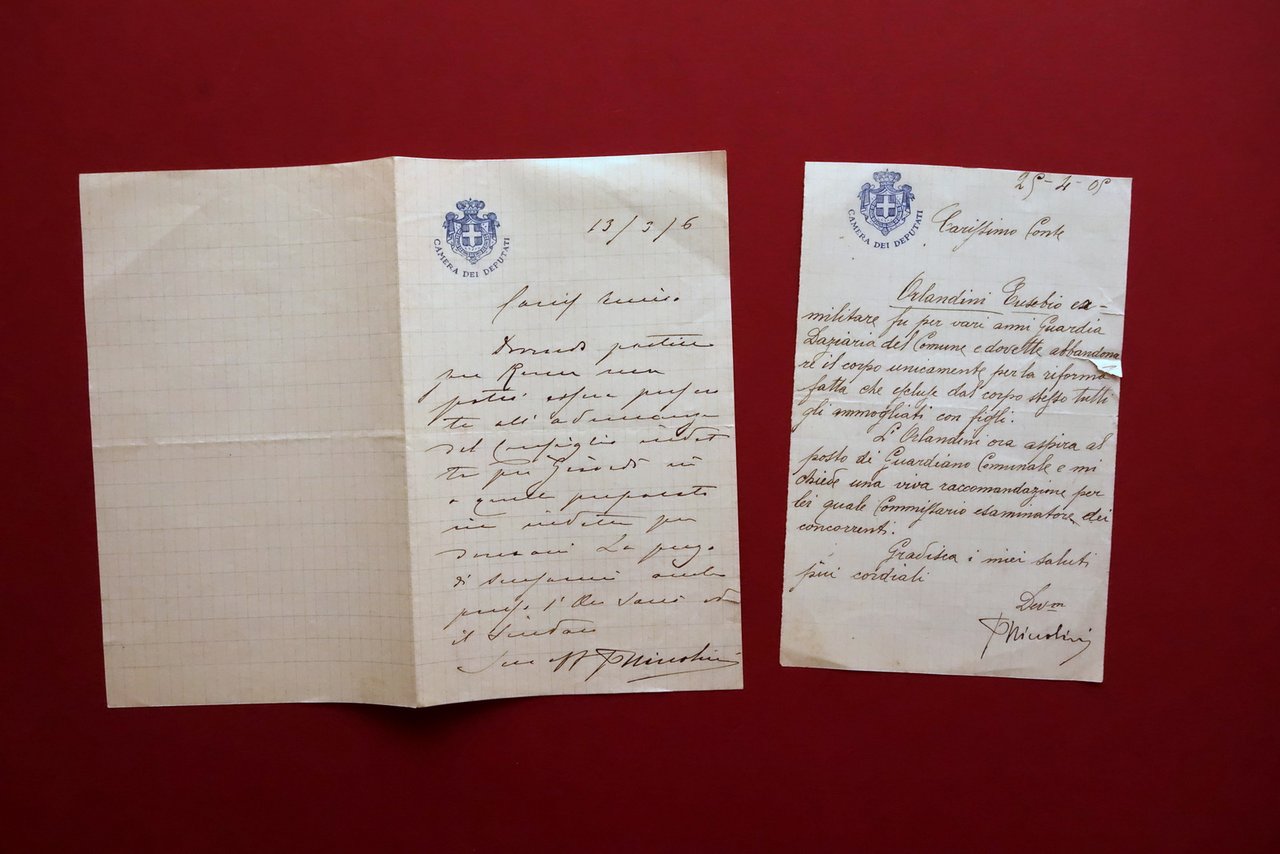 CAMERA DEI DEPUTATI
13/3/6
Dovendo
per Roma non
potrò essere presen
te all'adunanza
del Consiglio indet
ta per Giovedì
a quella
indetta per
domani La prego
di scusarmi anche
presso
il Sindaco
Suo aff PNiccolini
CAMERA DEI DEPUTATI
25-4-05
Carissimo Conte
Orlandini Eusebio ex-
militare fu per vari anni Guardia
Daziaria del Comune e dovette abbandona
re il corpo unicamente per la riforma
fatta che escluse dal corpo stesso tutti
gli ammogliati con figli.
L'Orlandini ora aspira al
posto di Guardiano Comunale e mi
chiede una viva raccomandazione per
lei quale Commissario esaminatore dei
concorrenti.
Gradisca i miei saluti
più cordiali
Dev.m
PNiccolini